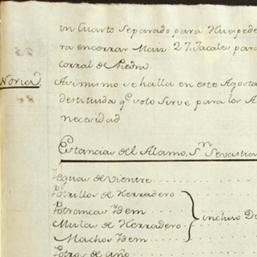 un Cuarto Separado para Huespede
ra encerrar Maiz 27 Jacales para
corral de Piedra.
Noria
Asimismo se halla en este Agosta
destituida q.e solo Sirve para los A
necesidad
Estancia del Alamo, S.n Sevastia
Yeguas de Vientre
Potrillos de Herradero
Potrancas Idem
Mulas de Herradero
incluso D
Machos Idem
Potros de año